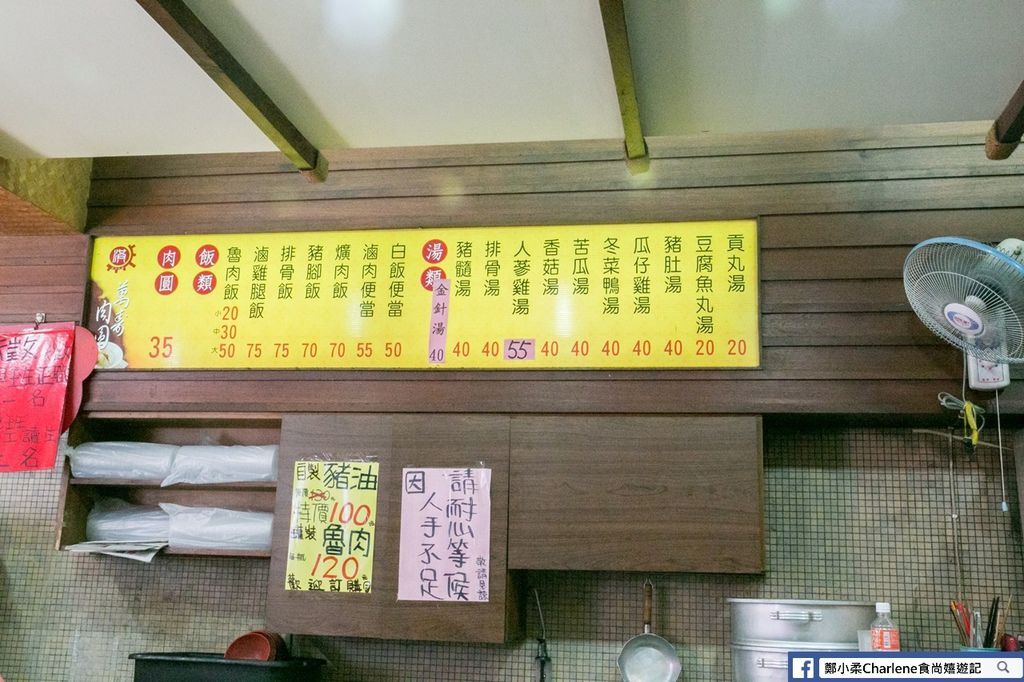 萬壽
肉圓
肉圓
35
飯類
魯肉飯
小20
中30
大50
滷雞腿飯
75
排骨飯
75
豬腳飯
70
爌肉飯
70
滷肉便當
55
白飯便當
50
湯類
金針湯
40
豬髓湯
40
排骨湯
40
人蔘雞湯
55
香菇湯
40
苦瓜湯
40
冬菜鴨湯
40
瓜仔雞湯
40
豬肚湯
40
豆腐魚丸湯
20
貢丸湯
20
自製豬油
130
特價100
罐裝魯肉
120
歡迎訂購
請耐心等候
因人手不足
敬請見諒
徵
一名
鄭小柔Charlene食尚嬉遊記